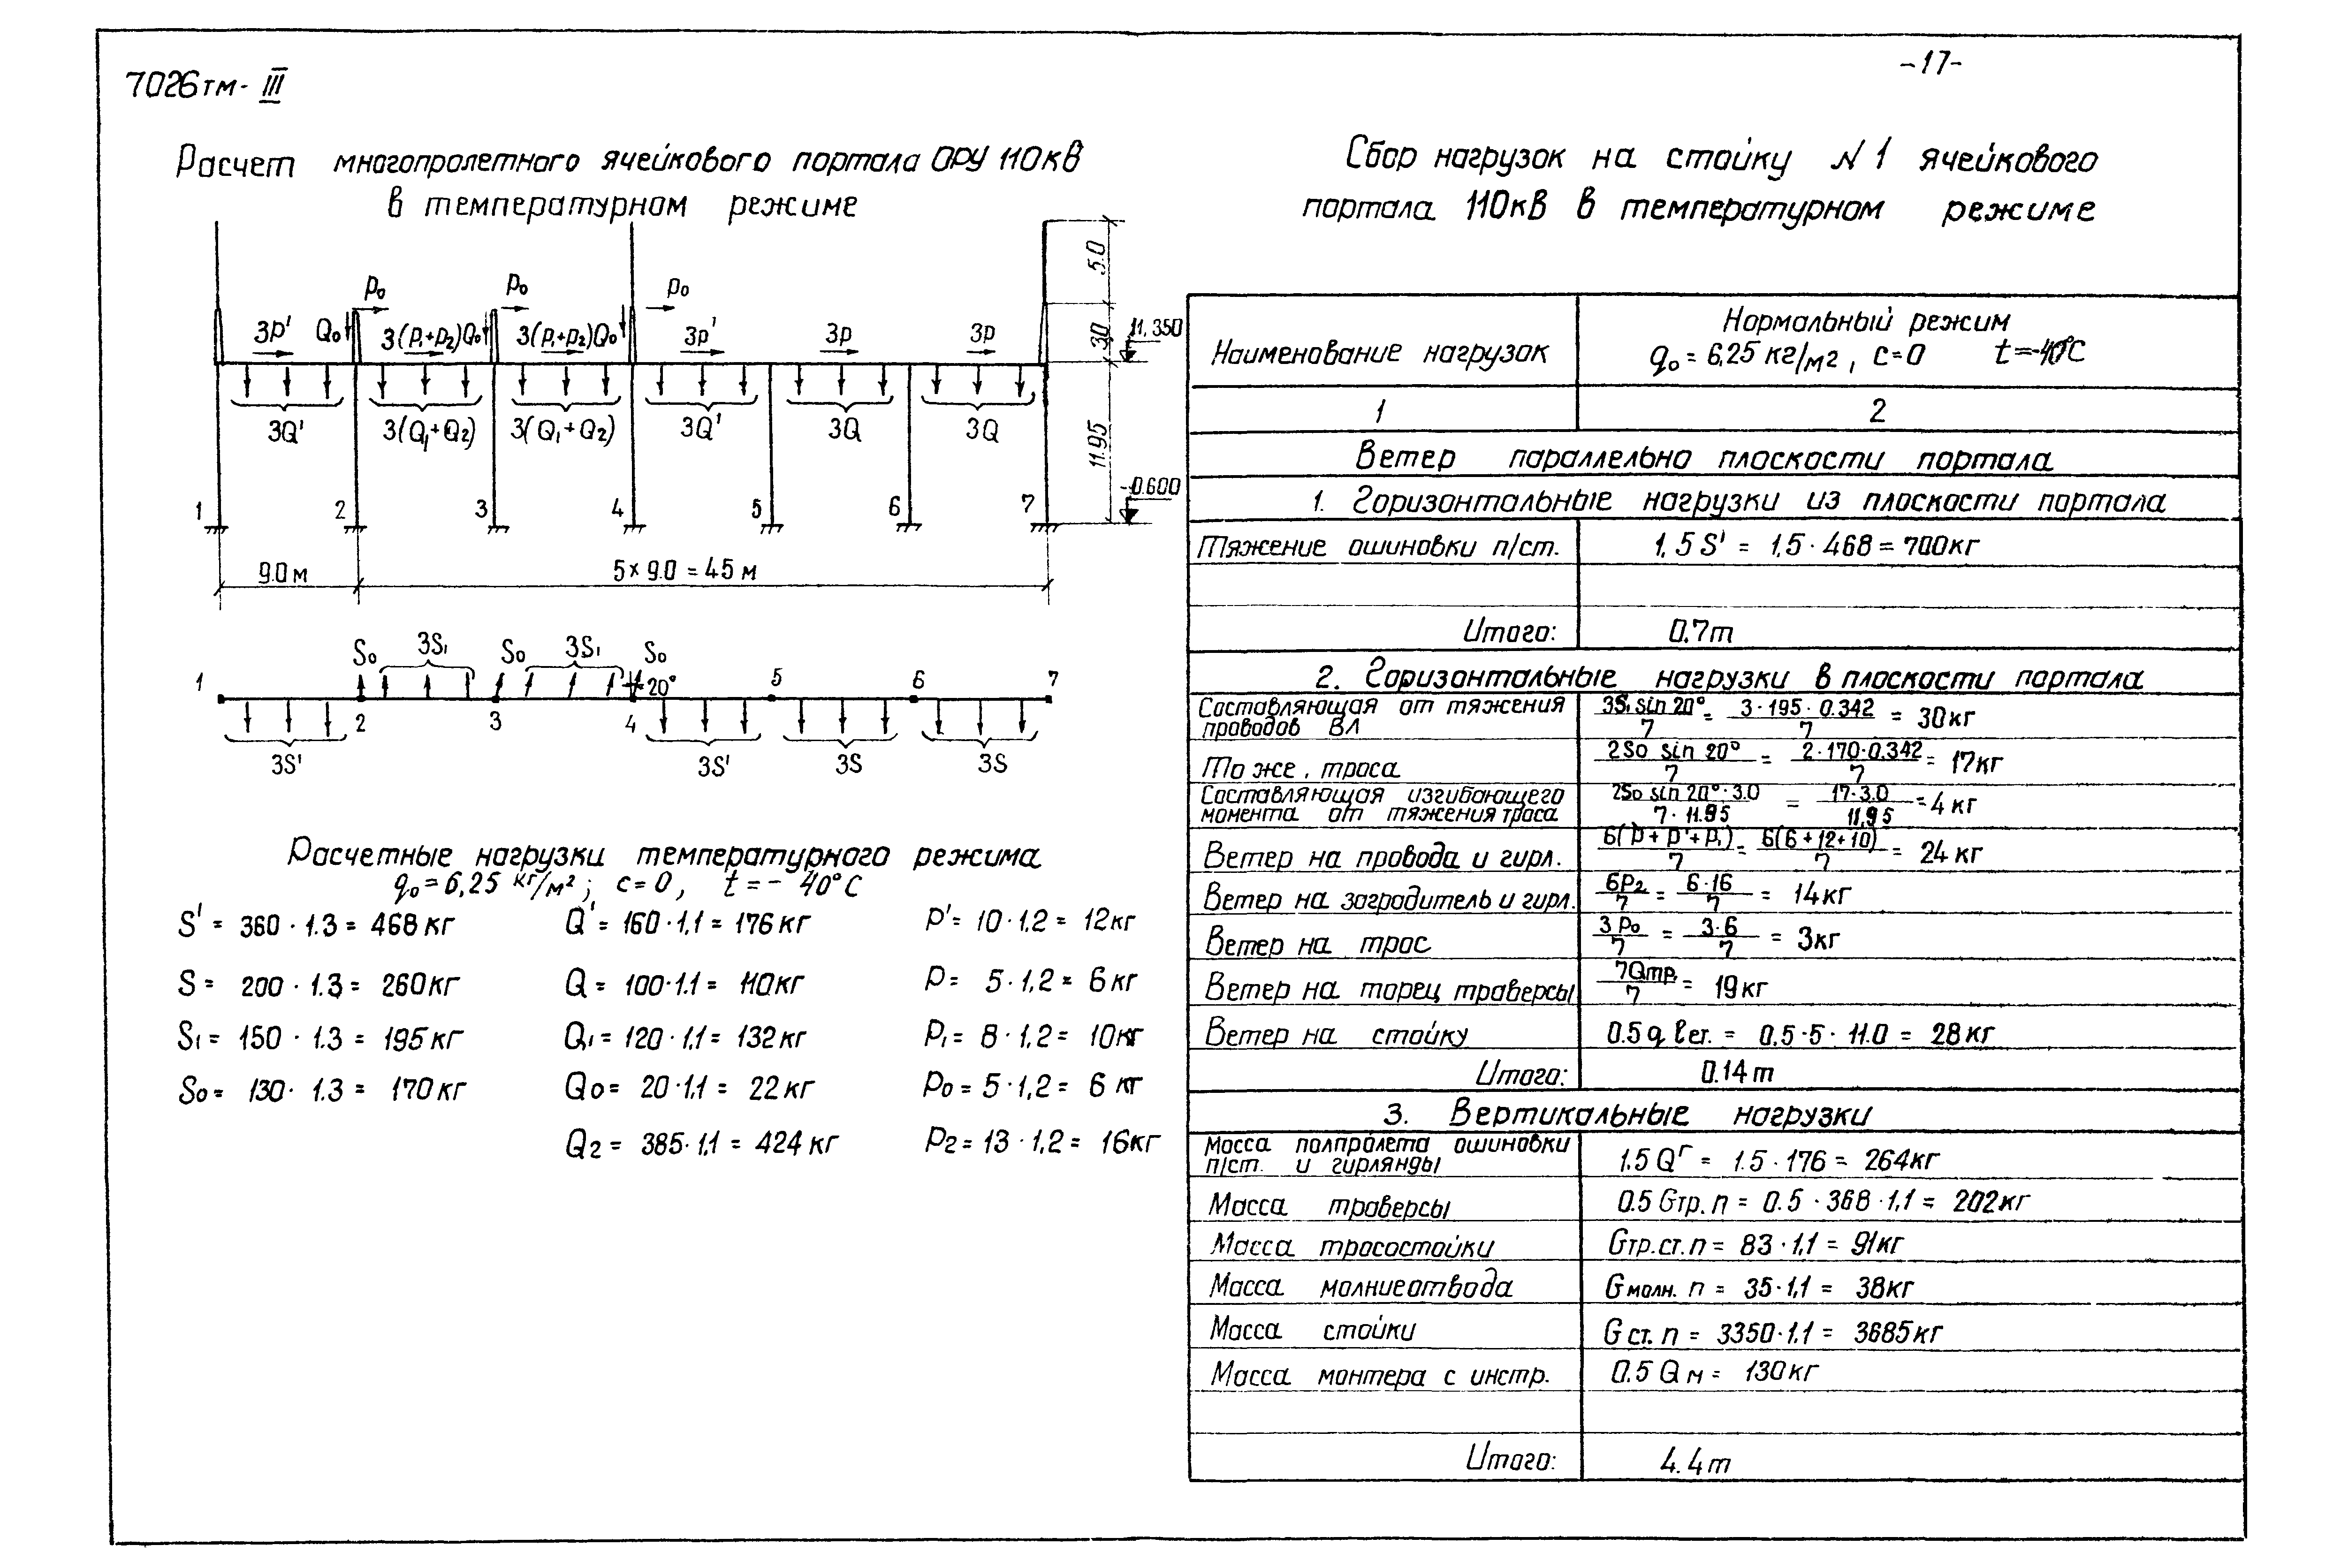 7026тм-III
-17-
Расчет многопролетного ячейкового портала ОРУ 110кВ
в температурном режиме
P₀ P₀ P₀
3P' Q₀ 3(P₁+P₂) Q₀ 3(P₁+P₂) Q₀ 3P' 3P 3P
3Q' 3(Q₁+Q₂) 3(Q₁+Q₂) 3Q' 3Q 3Q
5.0
30
11.95
11,350
-0.600
1 2 3 4 5 6 7
9.0м 5×9.0=45м
S₀ 3S₁ S₀ 3S₁ S₀
20°
1 2 3 4 5 6 7
3S' 3S' 3S 3S
Расчетные нагрузки температурного режима
q₀=6,25 кг/м²; c=0, t=-40°C
S' = 360·1.3 = 468кг Q' = 160·1,1 = 176кг P' = 10·1.2 = 12кг
S = 200·1.3 = 260кг Q = 100·1.1 = 110кг P = 5·1,2 = 6кг
S₁ = 150·1.3 = 195кг Q₁ = 120·1,1 = 132кг P₁ = 8·1,2 = 10кг
S₀ = 130·1.3 = 170кг Q₀ = 20·1.1 = 22кг P₀ = 5·1,2 = 6кг
Q₂ = 385·1,1 = 424кг P₂ = 13·1.2 = 16кг
Сбор нагрузок на стойку N1 ячейкового
портала 110кВ в температурном режиме
Наименование нагрузок
Нормальный режим
q₀=6,25 кг/м², c=0 t=-40°C
1 2
Ветер параллельно плоскости портала
1. Горизонтальные нагрузки из плоскости портала
Тяжение ошиновки п/ст. 1,5S' = 1,5·468=700кг
Итого: 0.7т
2. Горизонтальные нагрузки в плоскости портала
Составляющая от тяжения
проводов ВЛ 3S₁ sin20°/7 = 3·195·0.342/7 = 30кг
То же, троса 2S₀ sin 20°/7 = 2·170·0.342/7 = 17кг
Составляющая изгибающего
момента от тяжения троса 2S₀ sin20°·3.0/7·11.95 = 17·3.0/11,95 = 4кг
Ветер на провода и гирл. 6(P+P'+P₁)/7 = 6(6+12+10)/7 = 24кг
Ветер на заградитель и гирл. 6P₂/7 = 6·16/7 = 14кг
Ветер на трос 3P₀/7 = 3·6/7 = 3кг
Ветер на торец траверсы 7Qтр./7 = 19кг
Ветер на стойку 0.5 q lст. = 0.5·5·11.0 = 28кг
Итого: 0.14т
3. Вертикальные нагрузки
Масса полпролета ошиновки
п/ст. и гирлянды 1.5Q' = 1.5·176 = 264кг
Масса траверсы 0.5 Gтр.п = 0.5·368·1,1 = 202кг
Масса тросостойки Gтр.ст.п = 83·1,1 = 91кг
Масса молниеотвода Gмолн.п = 35·1,1 = 38кг
Масса стойки Gст.п = 3350·1.1 = 3685кг
Масса монтера с инстр. 0.5Qм = 130кг
Итого: 4.4т